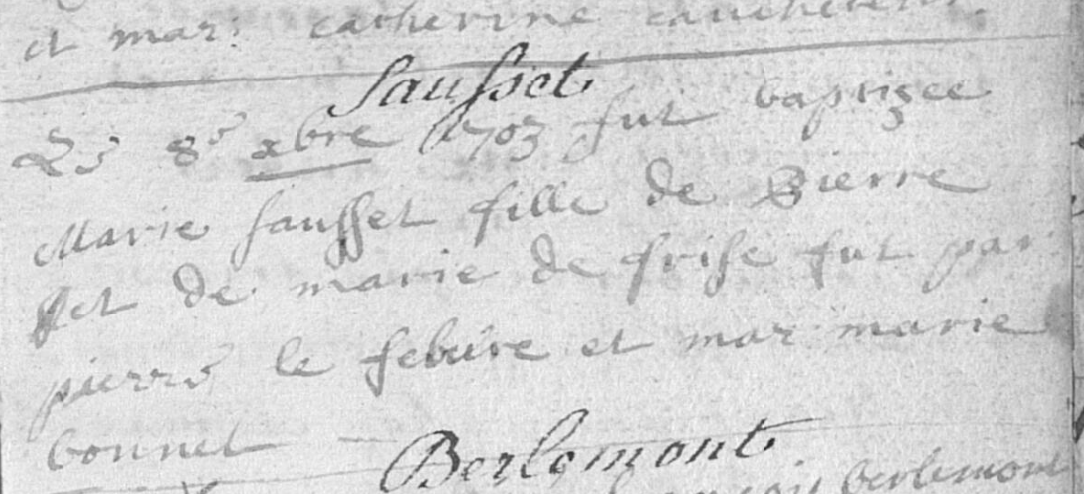 et mar: catherine
Sausset
Le 8e xbre 1703 fut baptizee
Marie sausset fille de Pierre
et de marie de frise fut par
pierre le febvre et mar marie
bonnet
Berlemont
berlemont